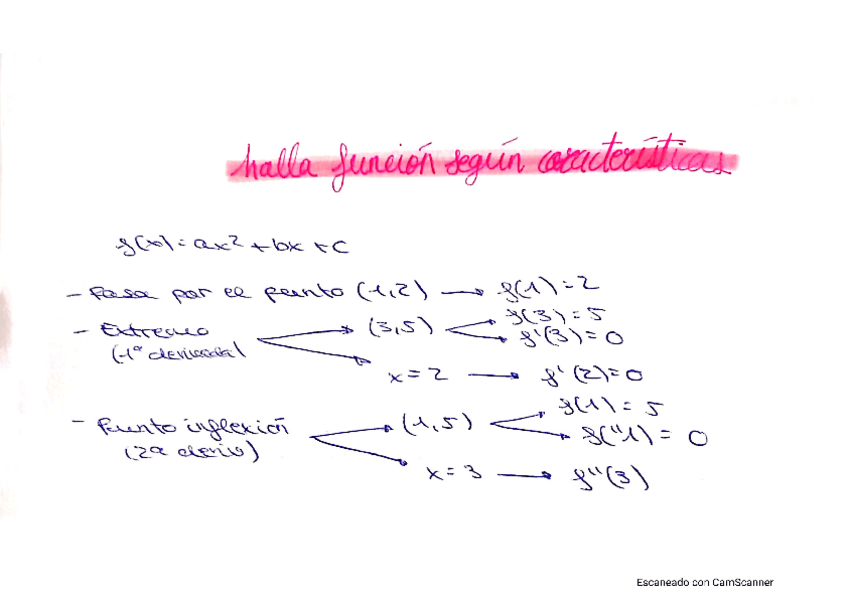 halla función según características
f(x) = ax² + bx + c
- Pasa por el punto (1,2) → f(1) = 2
- Extremo (3,5) f(3) = 5
(1ª derivada) f'(3) = 0
x = 2 → f'(2) = 0
- Punto inflexión (1,5) f(1) = 5
(2ª deriv) f("1) = 0
x = 3 → f"(3)
Escaneado con CamScanner